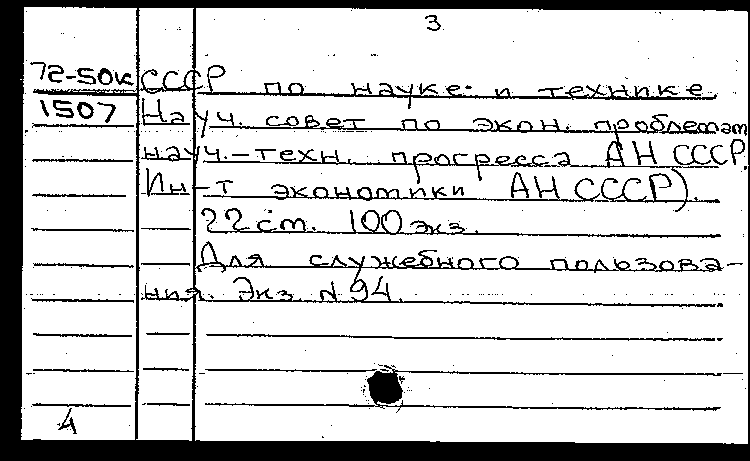 3
72-50к СССР по науке и технике.
1507 Науч. совет по экон. проблемам
науч.-техн. прогресса АН СССР.
Ин-т экономики АН СССР).
22 см. 100 экз.
Для служебного пользова-
ния. Экз. N 94.
4